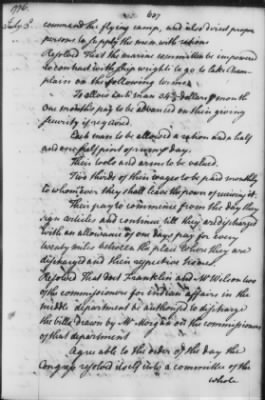 1776.
607
July 3d
command the flying camp, and also direct proper
persons to supply the men with rations
Resolved That the marine committee be impowered
to contract with shipwrights to go to lake Cham-
plain on the following terms
To allow each man 34⅔ dollars ⅌ month
one months pay to be advanced on their giving
security if required.
Each man to be allowed a ration and a half
and one half pint of rum ⅌ day.
Their tools and arms to be valued.
Two thirds of their wages to be paid monthly
to whomever they shall leave the power of receiving it.
Their pay to commence from the day they
sign articles and continue till they are discharged
with an allowance of one days pay for every
twenty miles between the place where they are
discharged and their respective homes
Resolved That doct Franklin and Mr Wilson two
of the commissioners for indian affairs in the
middle department be authorised to discharge
the bills drawn by Mr Morgan on the commissioners
of that department
Agreeable to the order of the day the
Congress resolved itself into a committee of the
whole